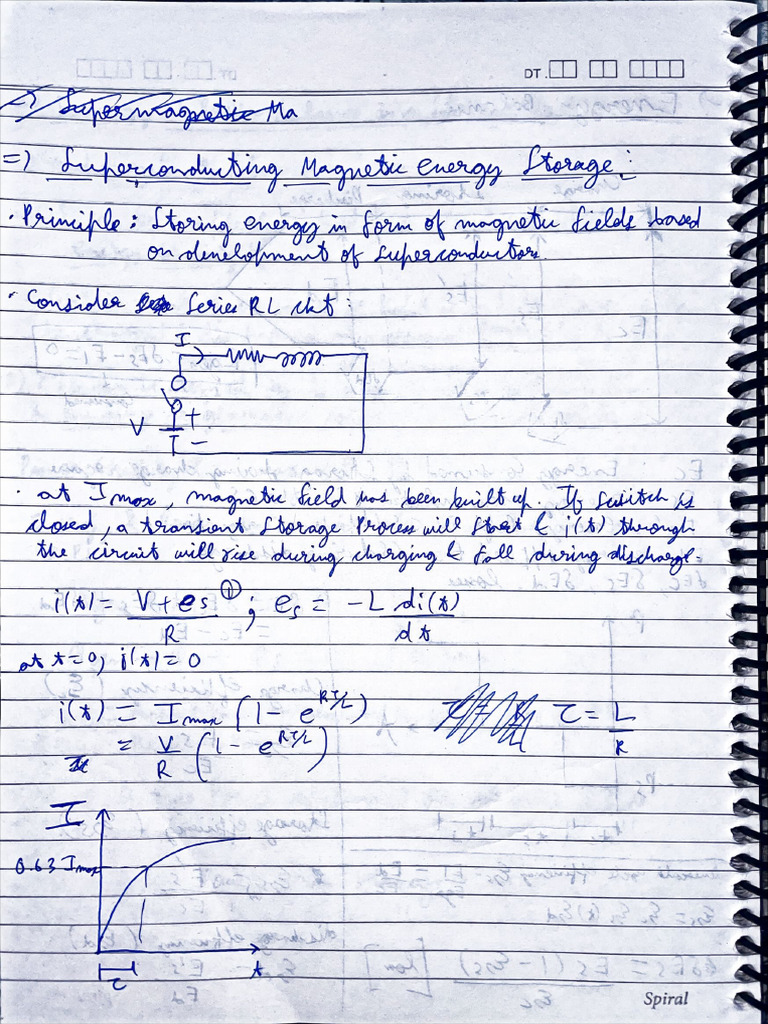 DT.
=) Supermagnetic Ma
=) Superconducting Magnetic energy Storage :
· Principle : Storing energy in form of magnetic fields based
on development of superconductors.
· Consider Series RL ckt :
I
V
+
-
· at Imax, magnetic field has been built up. If switch is
closed, a transient storage process will start & i(t) through
the circuit will rise during charging & fall during discharge.
i(t) = V + es / R ① ; es = -L di(t) / dt
at t=0, i(t) = 0
i(t) = Imax (1 - e^RT/L) τ = L / R
= V / R (1 - e^RT/L)
I
0.63 Imax
τ t
Spiral